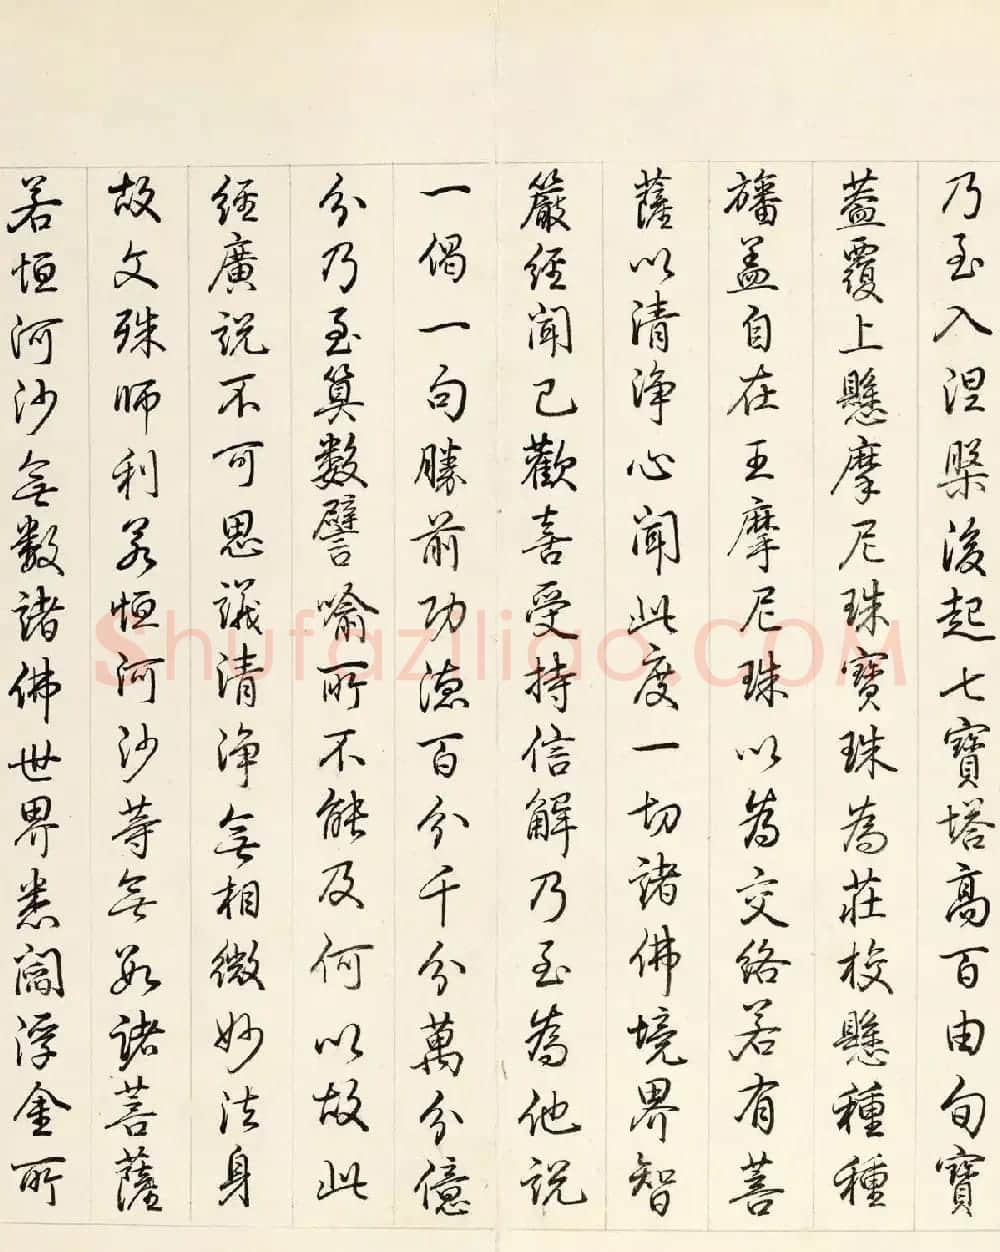 乃至入涅槃後起七寶塔高百由旬寶
蓋覆上懸摩尼珠寶珠為莊校懸種種
旛盖自在王摩尼珠以為交絡若有菩
薩以清淨心聞此度一切諸佛境界智
嚴經聞已歡喜受持信解乃至為他說
一偈一句勝前功德百分千分萬分億
分乃至算數譬喻所不能及何以故此
經廣說不可思議清淨無相微妙法身
故文殊師利若恒河沙等無數諸菩薩
若恒河沙無數諸佛世界悉閻浮金所
Shufaziliao.COM